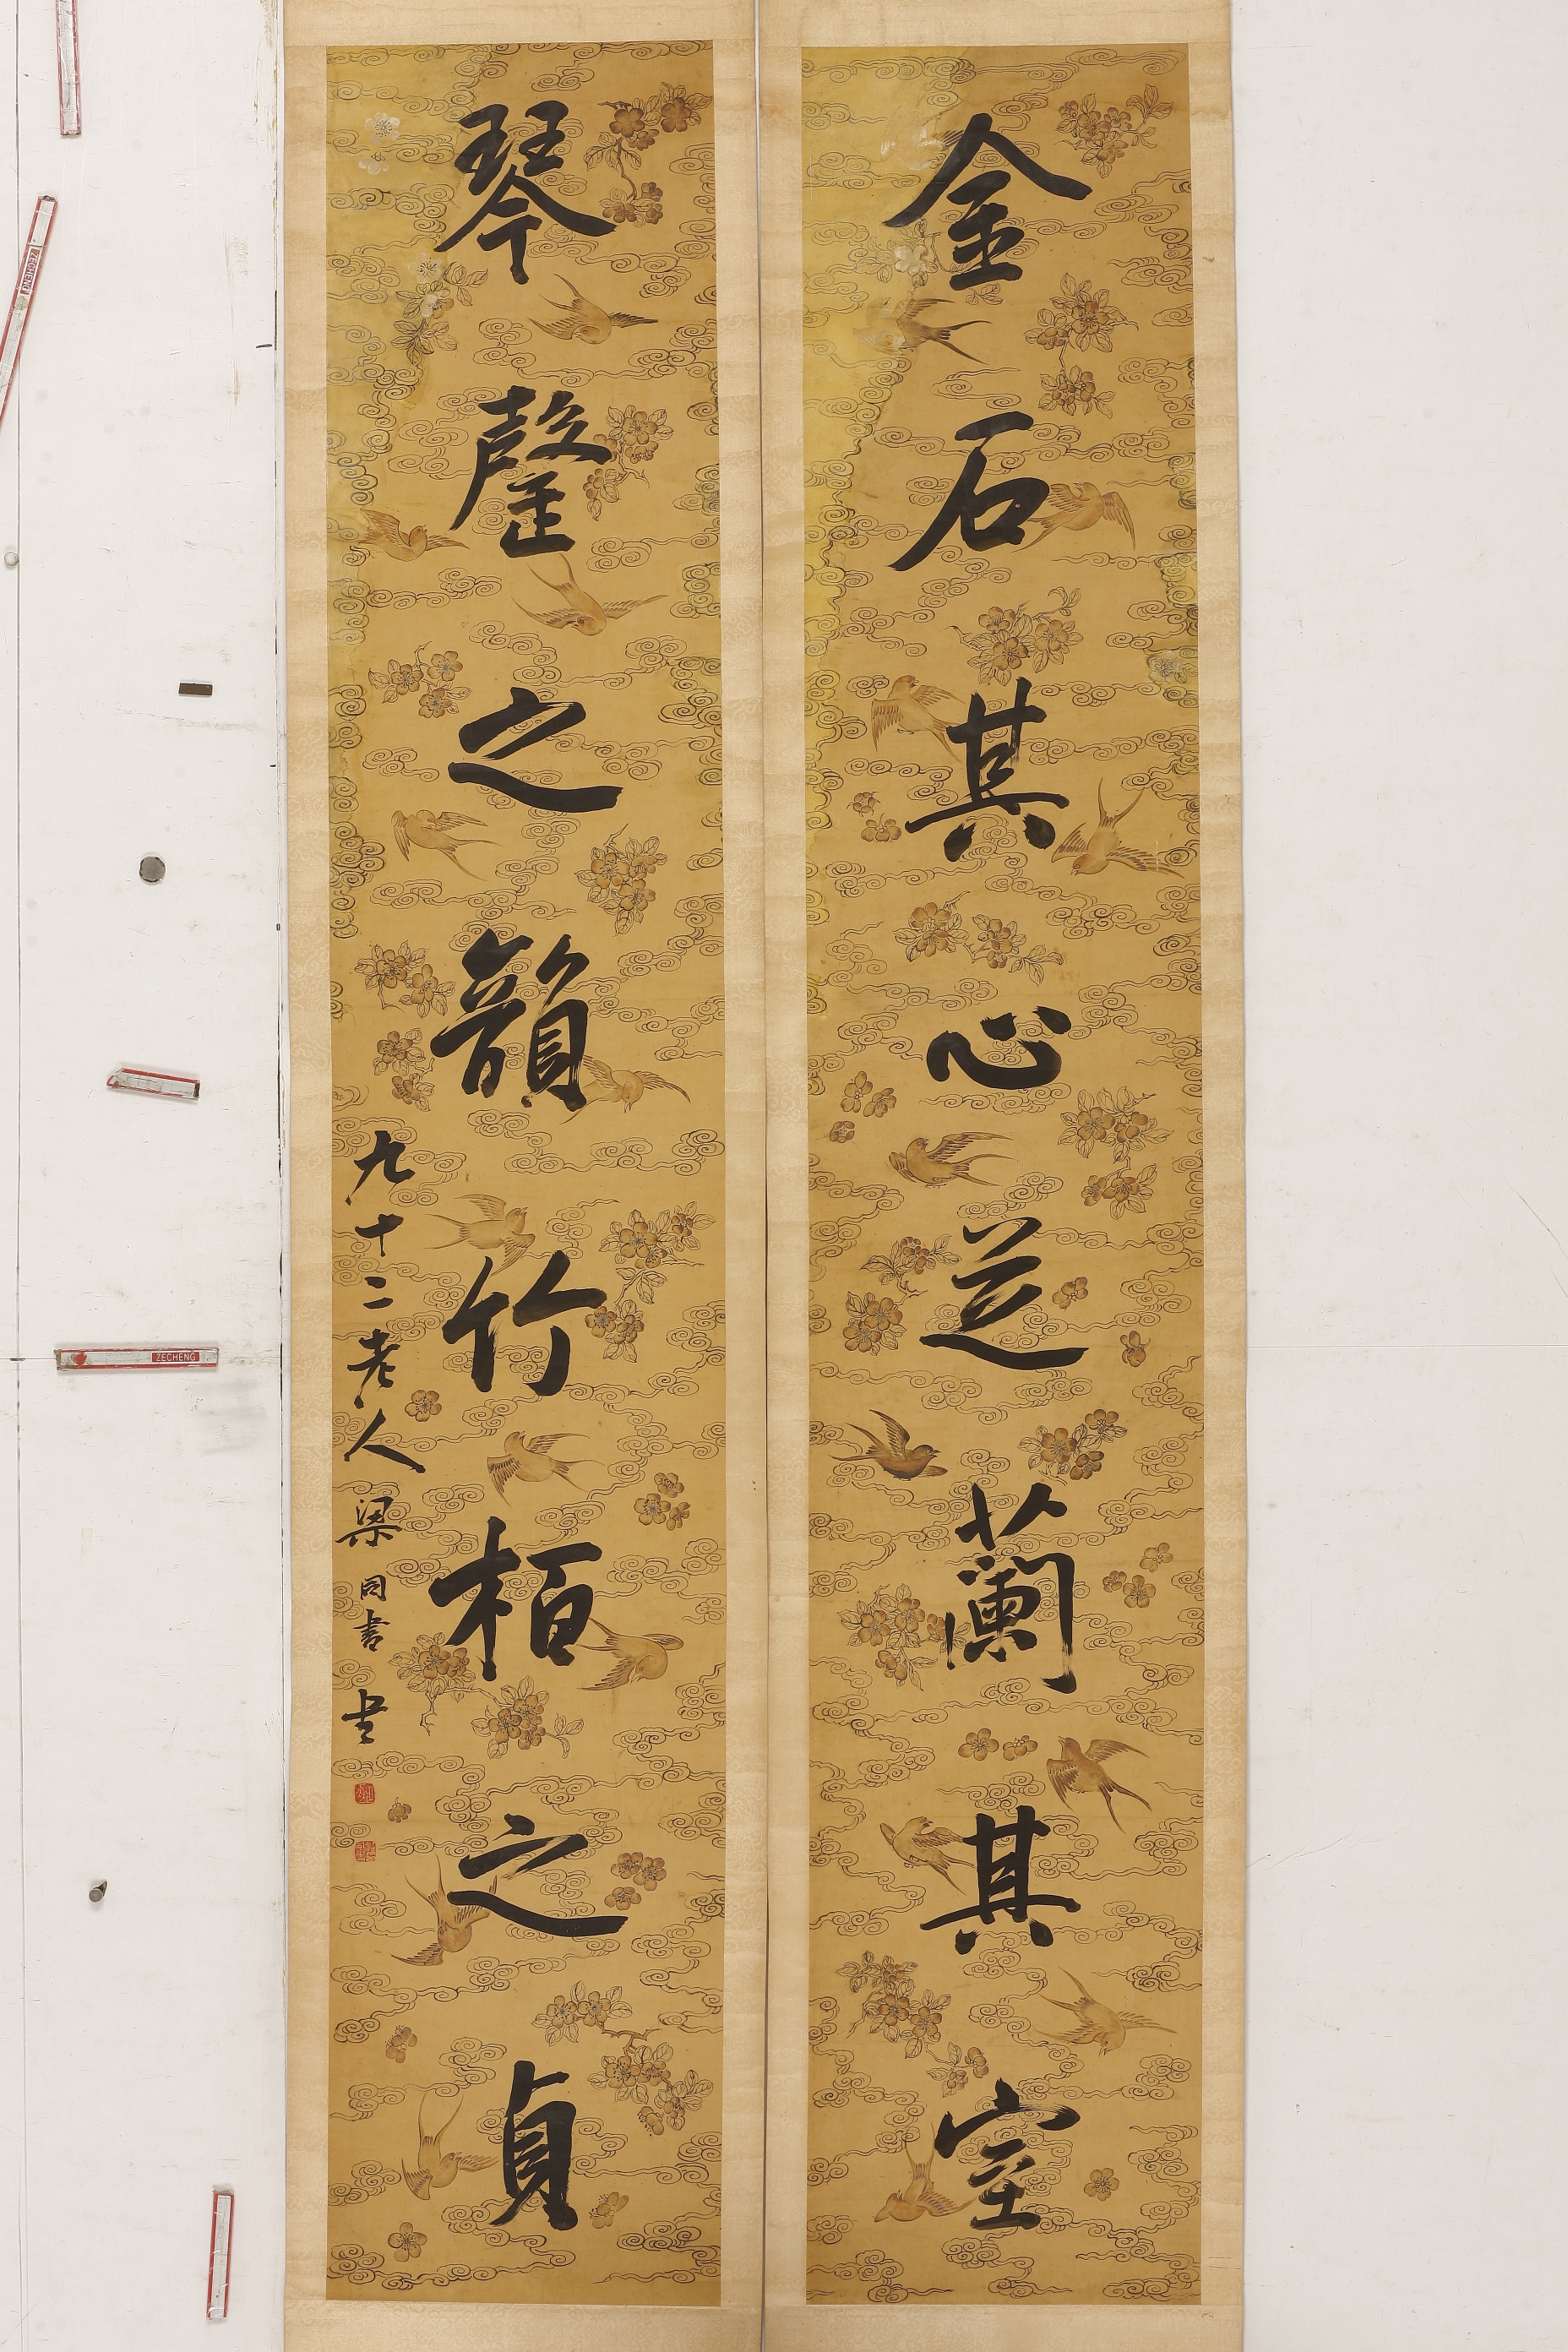 金石其心芝蘭其室
琴罄之韻竹栢之貞
九十二老人梁同書書
ZECHENG
ZECHENG